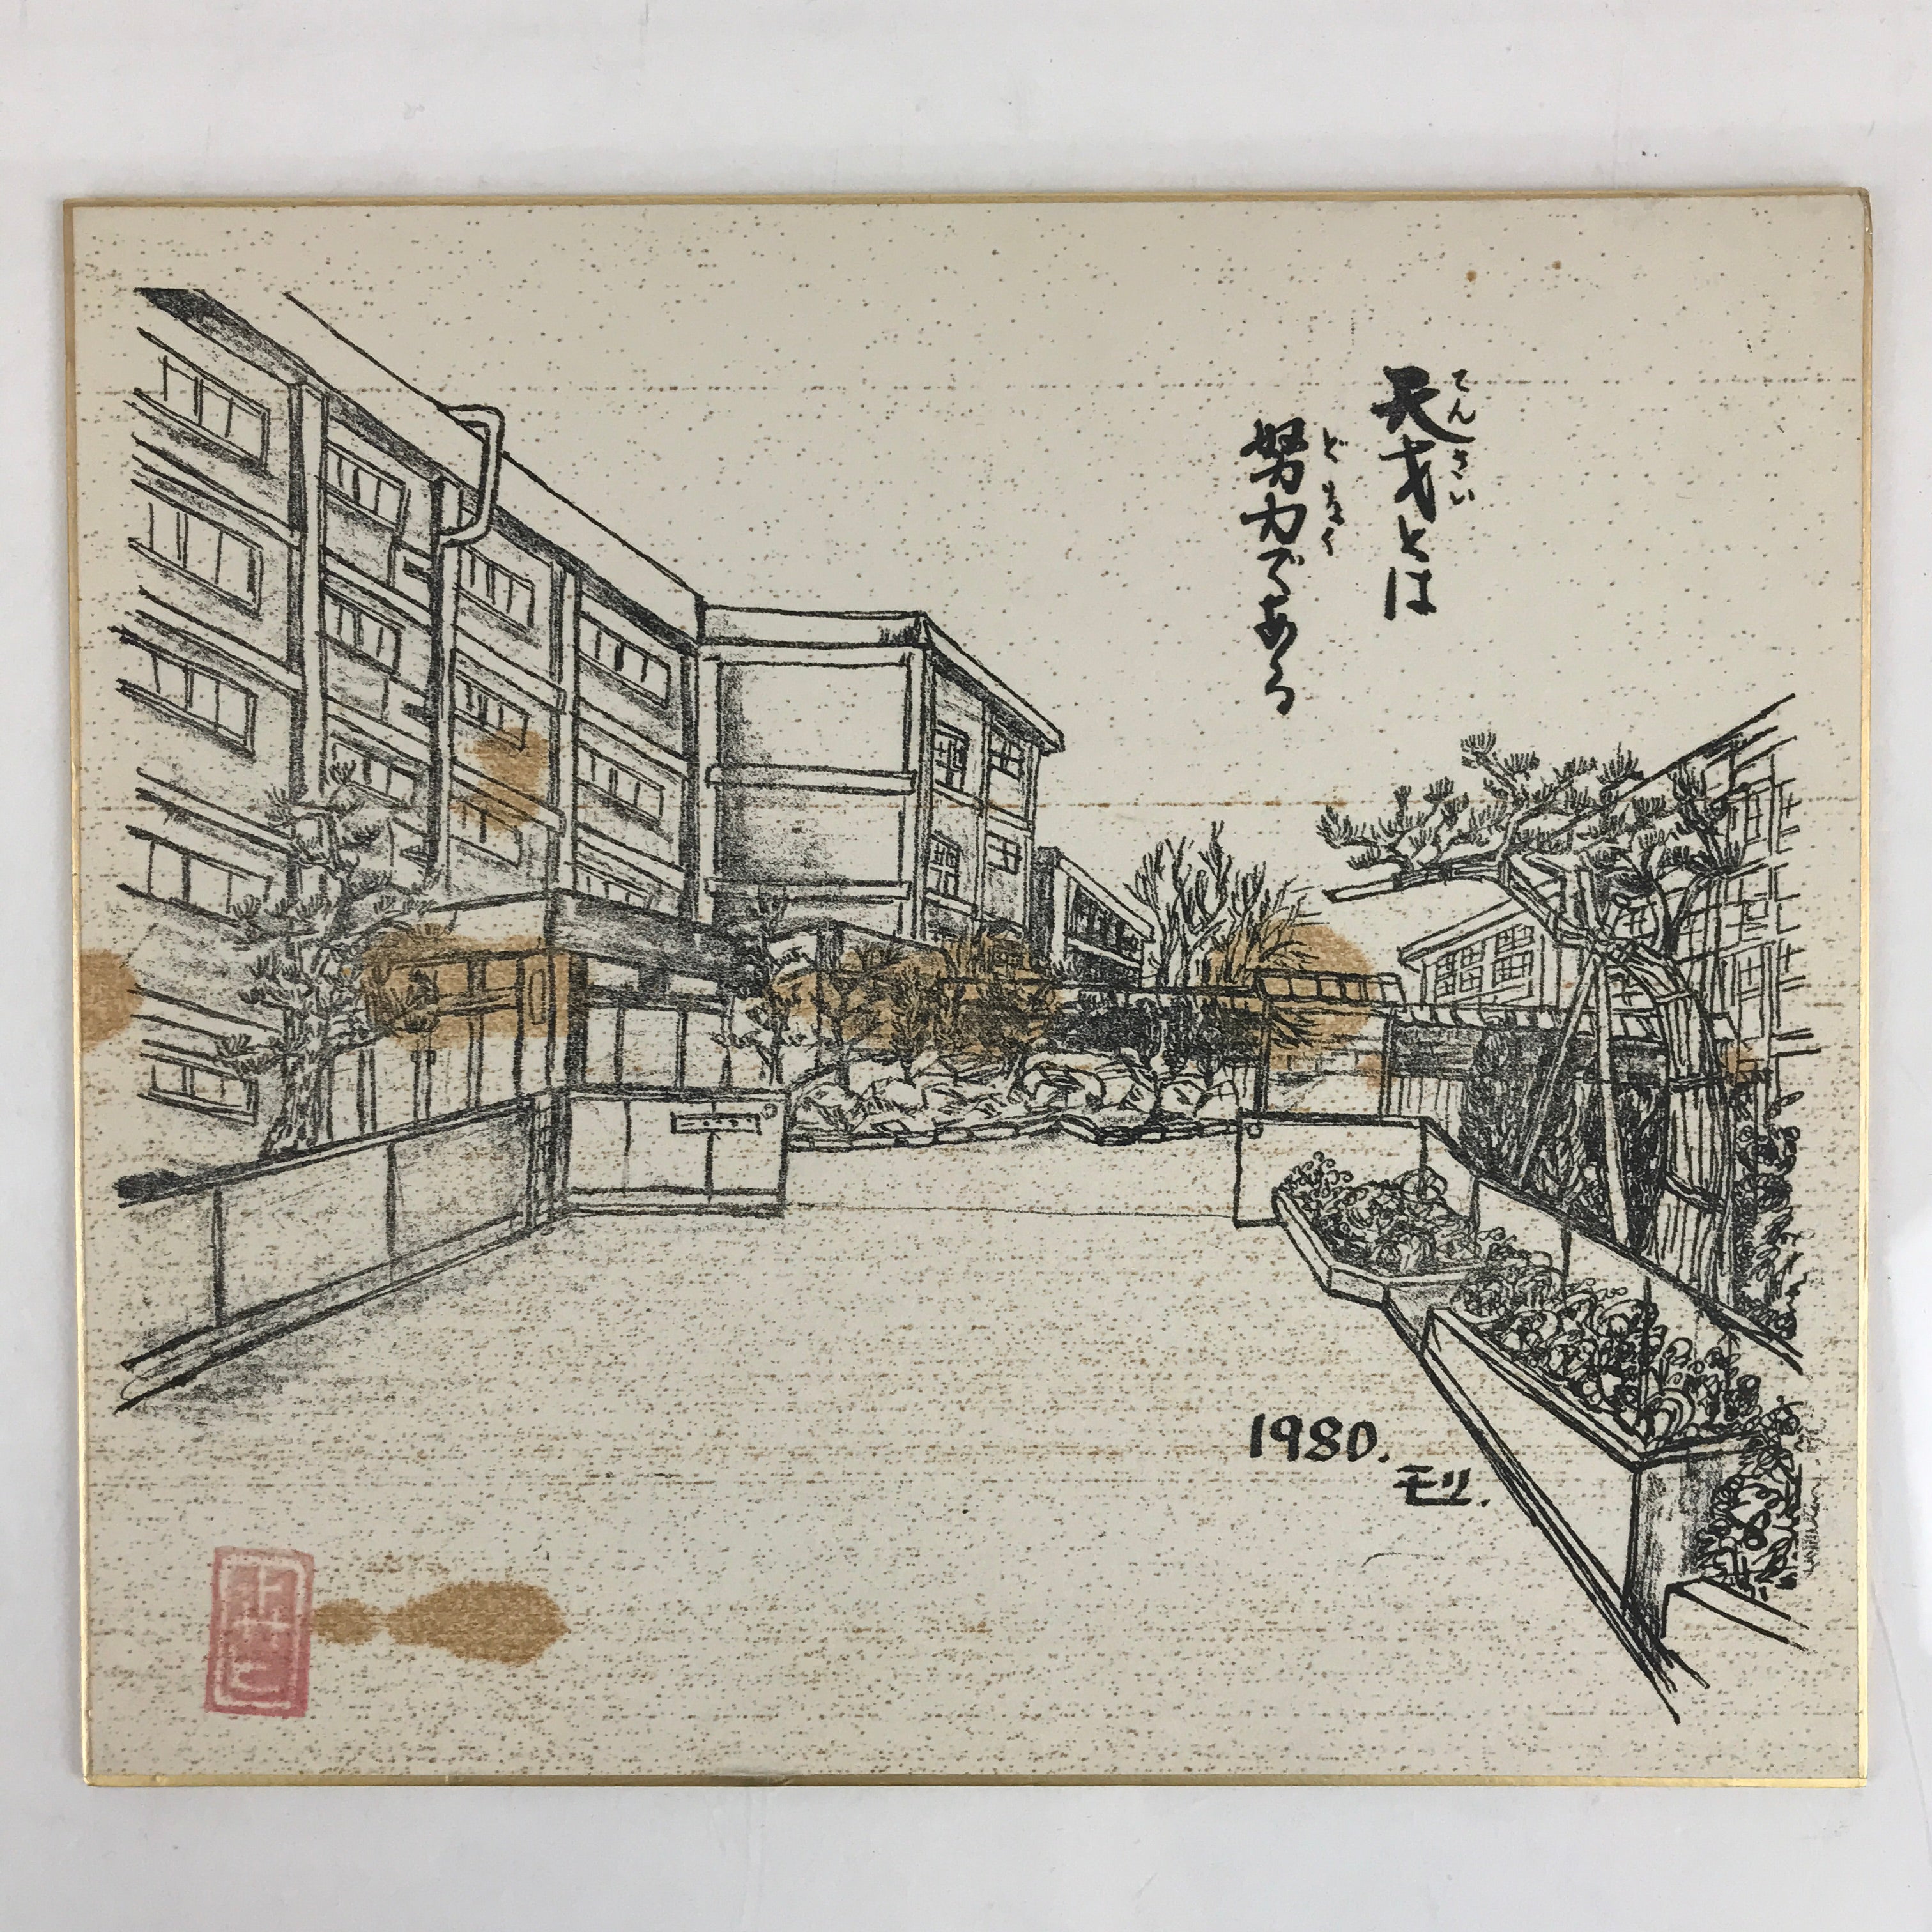 天才とは
てんさい
努力である
どりょく
1980.
モリ.